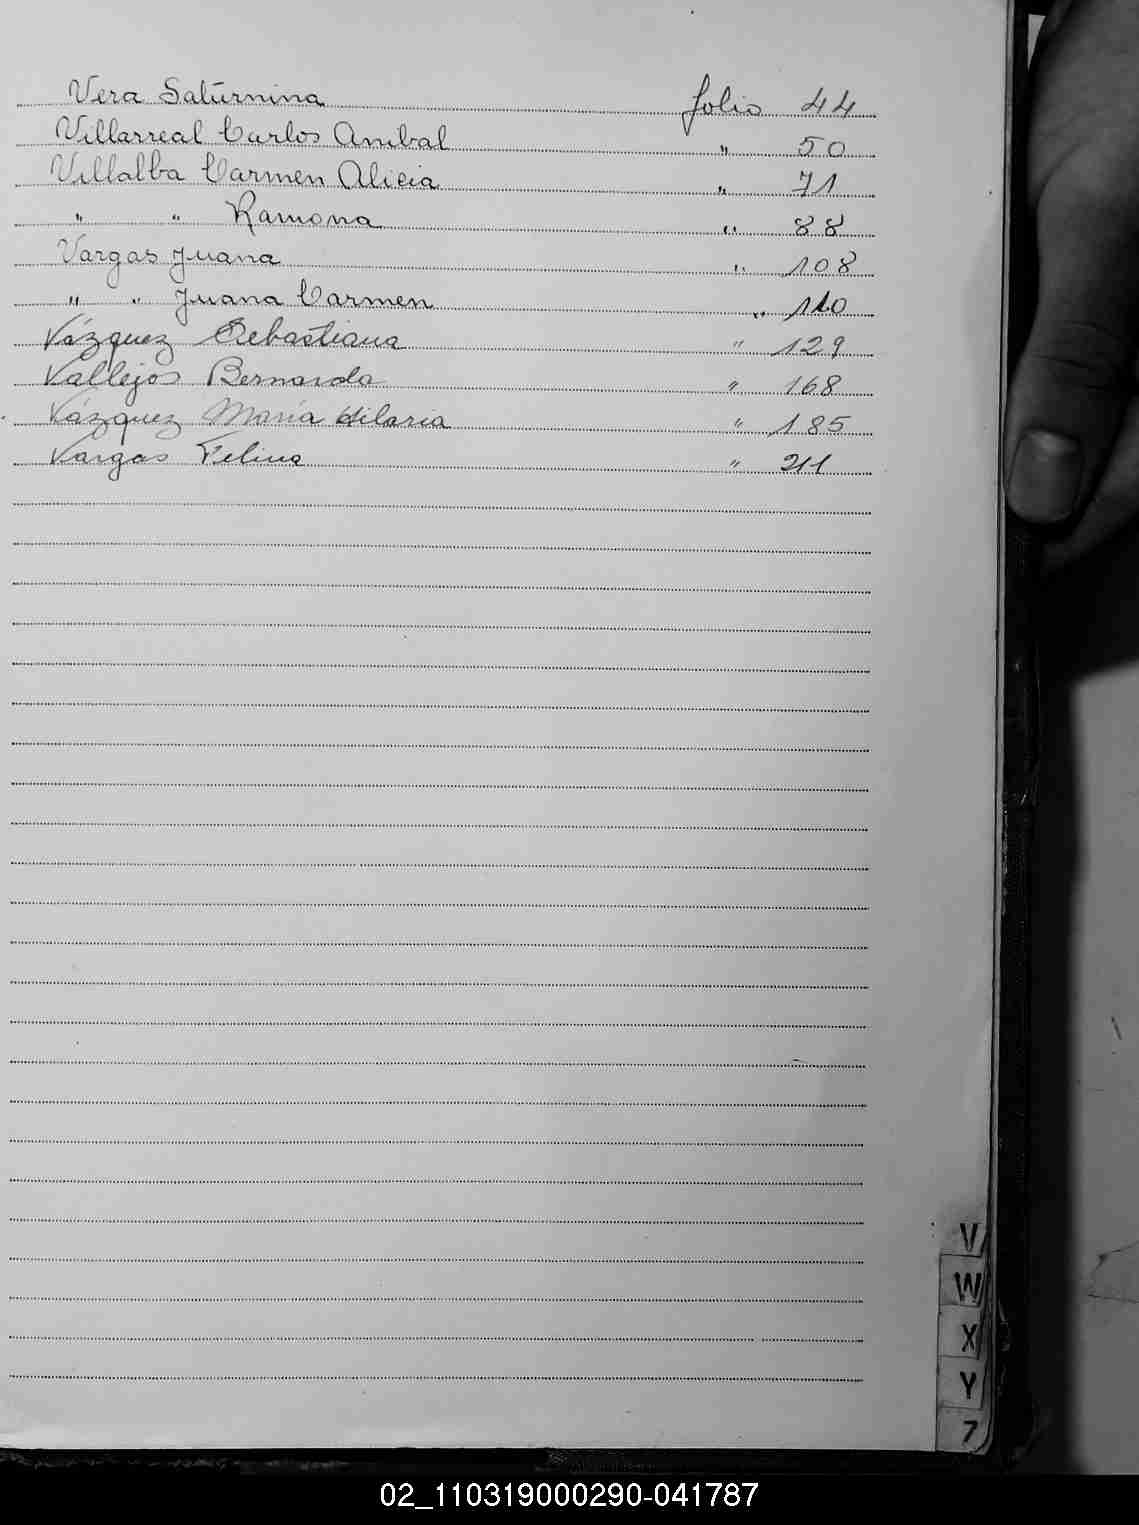 Vera Saturnina folio 44
Villarreal Carlos Anibal " 50
Villalba Carmen Alicia " 71
" " Ramona " 88
Vargas Juana " 108
" " Juana Carmen " 110
Vázquez Sebastiana " 129
Vallejos Bernarda " 168
Vázquez María Hilaria " 185
Vargas Felina " 211
V
W
X
Y
Z
02_110319000290-041787